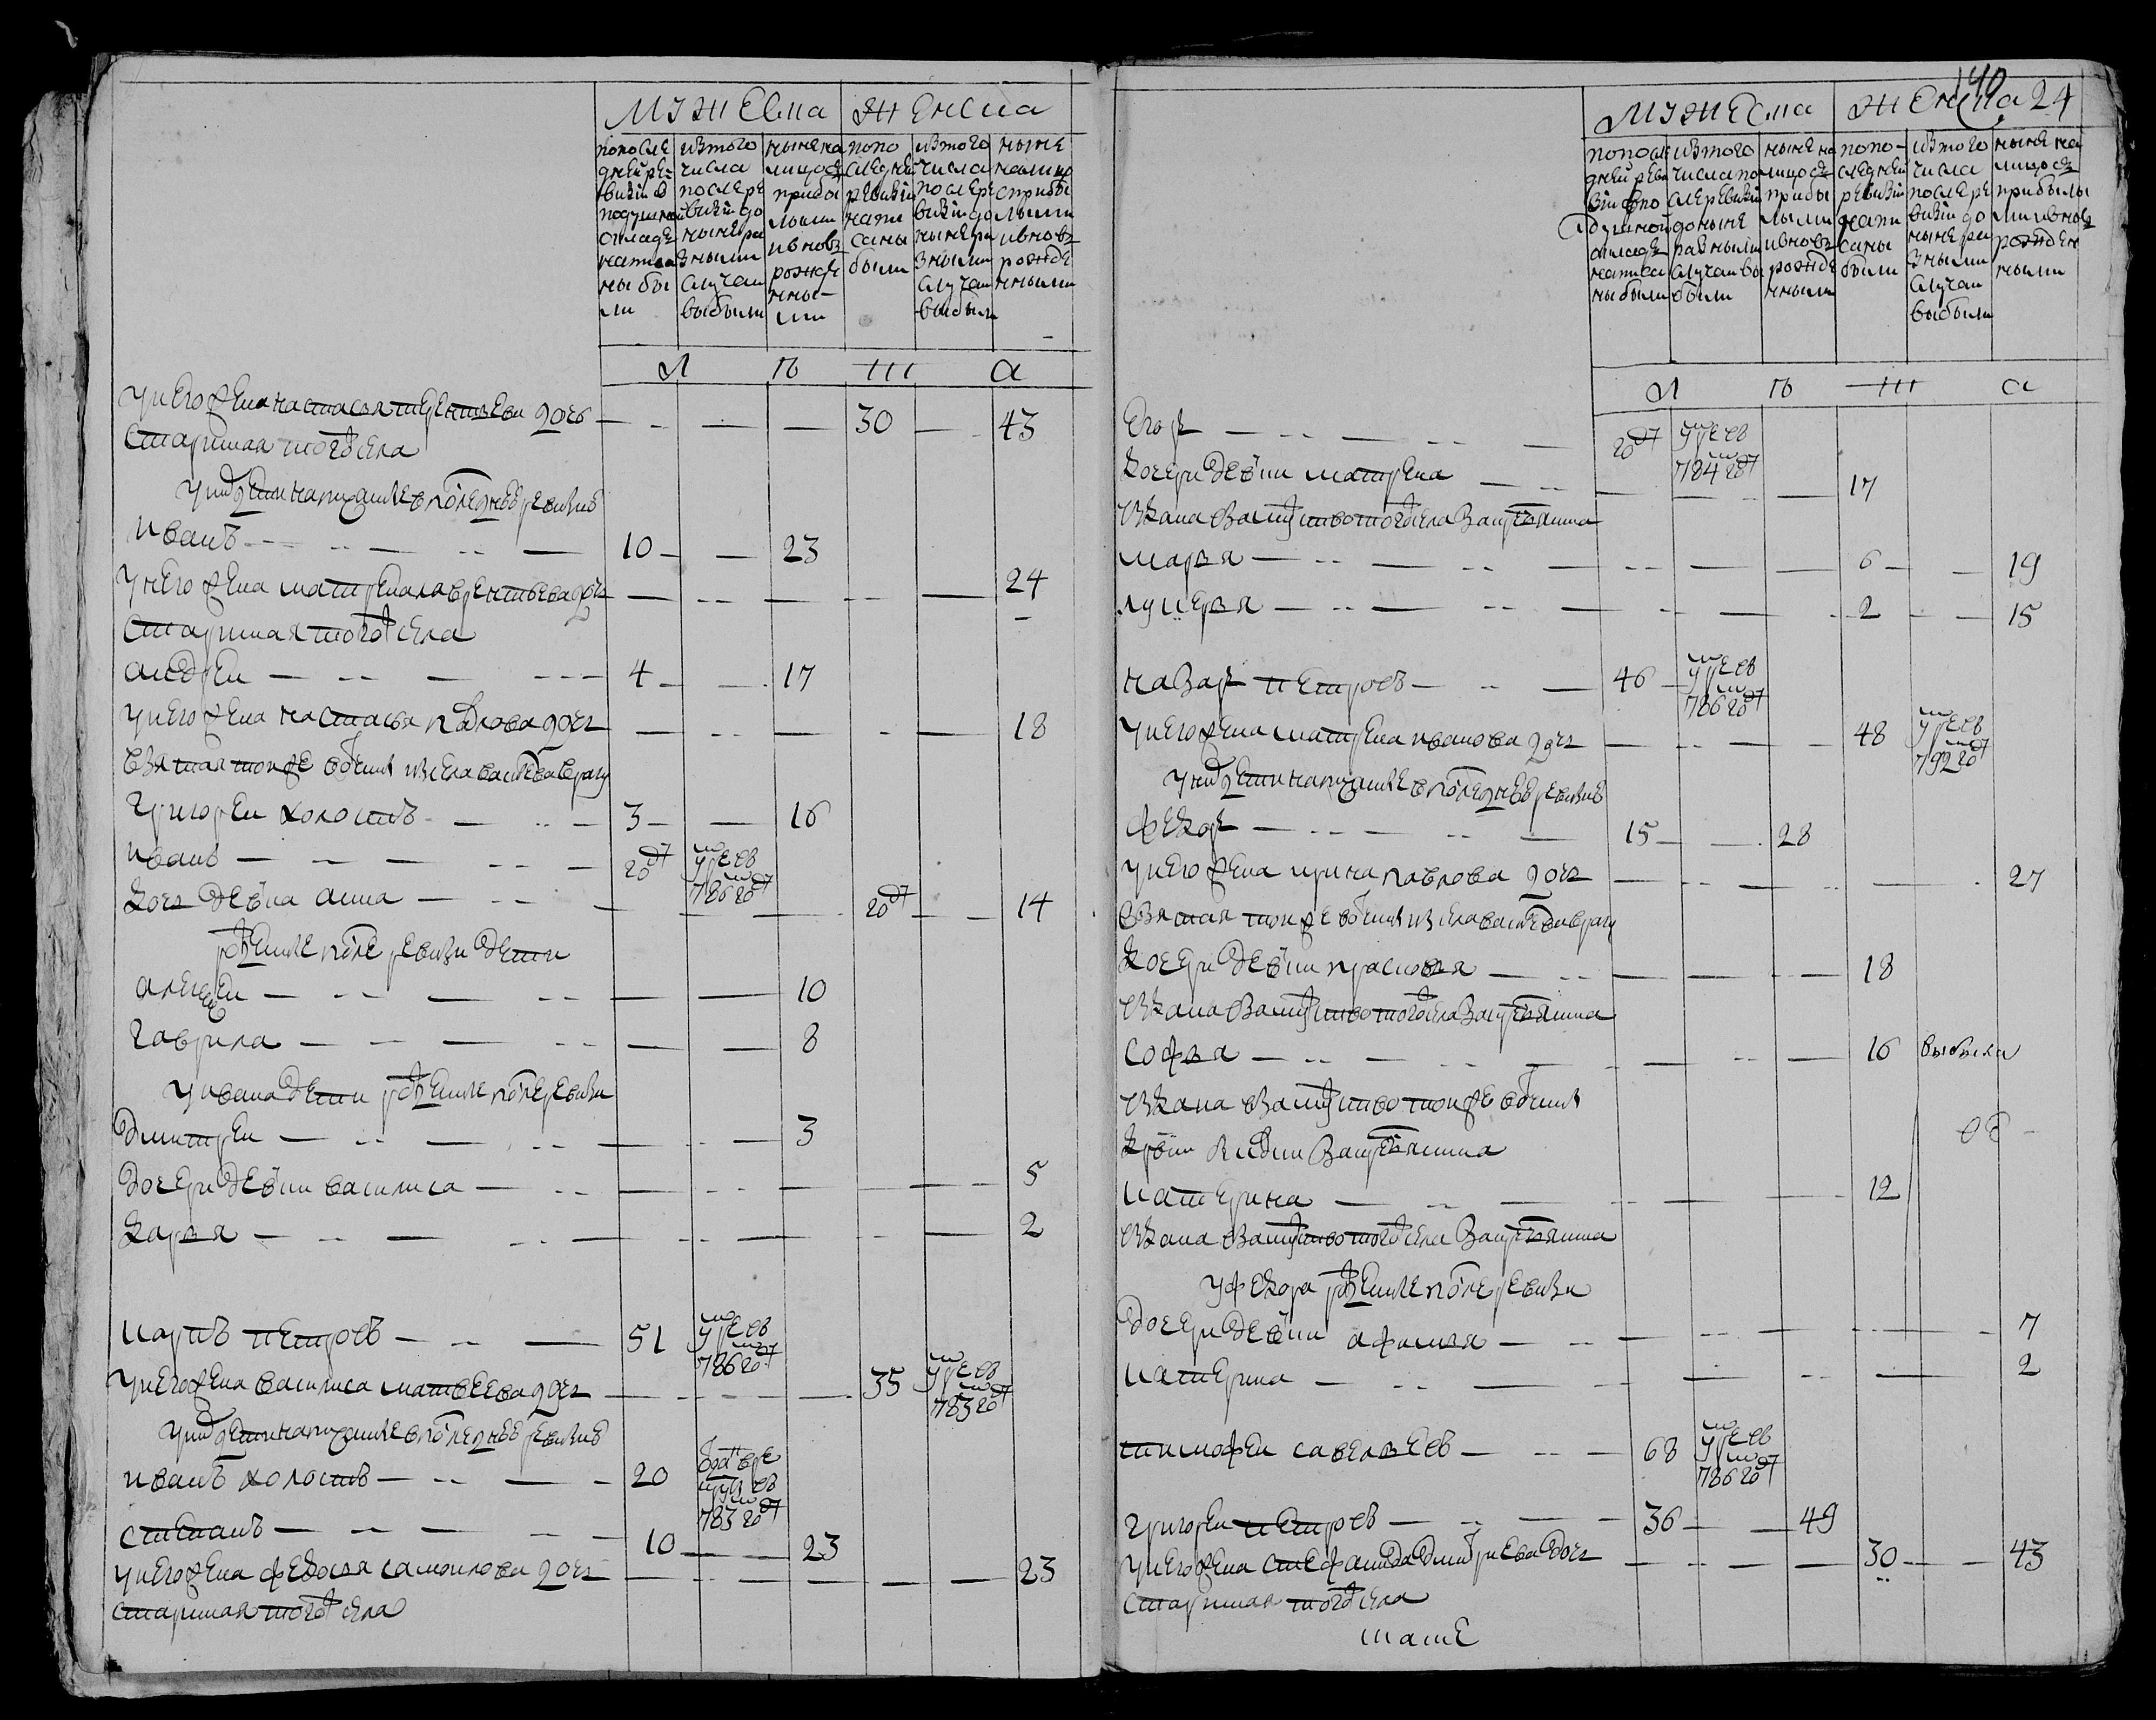 мужеска женска
попосле
дней ре-
визiи в
подушной
окладе
написа
ны бы
ли
изтого
числа
послере
визiи до
ныне ра
зными
случаи
выбыли
ныне на
лицо съ
прибы
лыми
ивновь
рожде
нны-
ми
попо
следней
ревизiи
напи
саны
были
изтого
числа
послере
визiи до
ныне ра
зными
случаи
выбыли
ныне
налицо
сприбы
лыми
ивновь
рожде
нными
л ѣ т а
унего жена настасья терентьева дочь — 30 — 43
старинная того села
унихдети написанные впоследней ревизiи
иванъ — 10 — 23
унего жена матрена лаврентьева дочь — 24
старинная того села
андреи — 4 — 17
унего жена настасья павлова дочь — 18
взятая тойже вотчины изсела
григореи холостъ — 3 — 16
иванъ — 20д умревъ 786 год
дочь девка анна — 20д — 14
рожденные после ревизи дети
алексеи — 10
гаврила — 8
уивана дети рожденные после ревизи
дмитреи — 3
дочери девки василиса — 5
дарья — 2
карпъ петровъ — 51 умревъ 786 год
унегожена василиса матвеева дочь — 35 умревъ 783 год
унихдети написанные впоследней ревизiи
иванъ холостъ — 20 783 год
степанъ — 10 — 23
унегожена федосья самоилова дочь — 23
старинная того села
140
мужеска женска 24
попосле
дней реви
зiи впо
душной
окладе
написа
ны были
изтого
числа по
слеревизiи
доныне
разными
случаи вы
были
ныне на
лицо съ
прибы
лыми
ивновь
рожде
нными
попо-
следней
ревизiи
напи
саны
были
изтого
числа
послере
визiи до
ныне ра
зными
случаи
выбыли
ныне на
лицо съ
прибылы
ми ивновь
рожден
ными
л ѣ т а
егоръ — 20д умревъ 784 год
дочери девки матрена — 17
выдана взамужство того села закрестьянина
марья — 6 — 19
лукерья — 2 — 15
назаръ петровъ — 46 умревъ 786 год
унегожена матрена иванова дочь — 48 умревъ 792 год
унихдети написанные впоследней ревизiи
федоръ — 15 — 28
унегожена ирина павлова дочь — 27
взятая тойже вотчины изсела
дочери девки прасковья — 18
выдана взамужство того села закрестьянина
софья — 16 выбыла
выдана взамужство тойже вотчины
закрестьянина
катерина — 12
выдана взамужство того села закрестьянина
уфедора рожденные после ревизи
дочери девки афимья — 7
катерина — 2
тимофеи савельевъ — 68 умревъ 786 год
григореи петровъ — 36 — 49
унегожена стефанида дмитриева дочь — 30 — 43
старинная того села